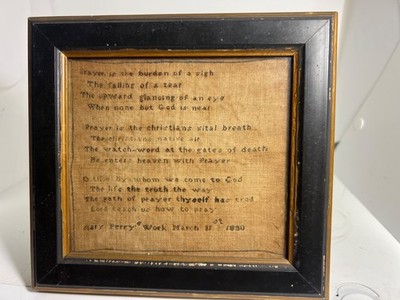 Prayer is the burden of a sigh
The falling of a tear
The upward glancing of an eye
When none But God is near
Prayer is the christians vital breath
The christians native air
The watch-word at the gates of death
He enters heaven with Prayer
O thou By whom we come to God
The life the truth the way
The path of prayer thyself has trod
Lord teach us how to pray
Mary Perry's Work March 1st 1830